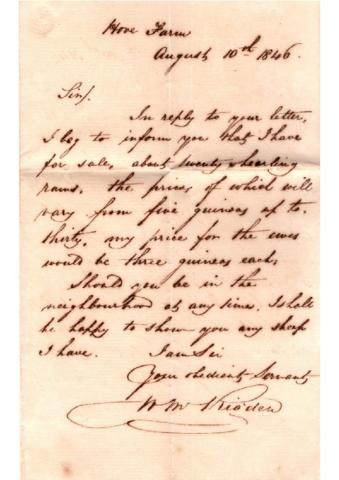 Hove Farm
August 10th 1846.
Sir/.
In reply to your letter,
I beg to inform you that I have
for sale, about twenty shearling
rams, the prices of which will
vary from five guineas up to,
thirty, my price for the ewes
would be three guineas each,
Should you be in the
neighbourhood at any time, I shall
be happy to show you any sheep
I have. I am Sir
Your obedient Servant
Wm Rigden